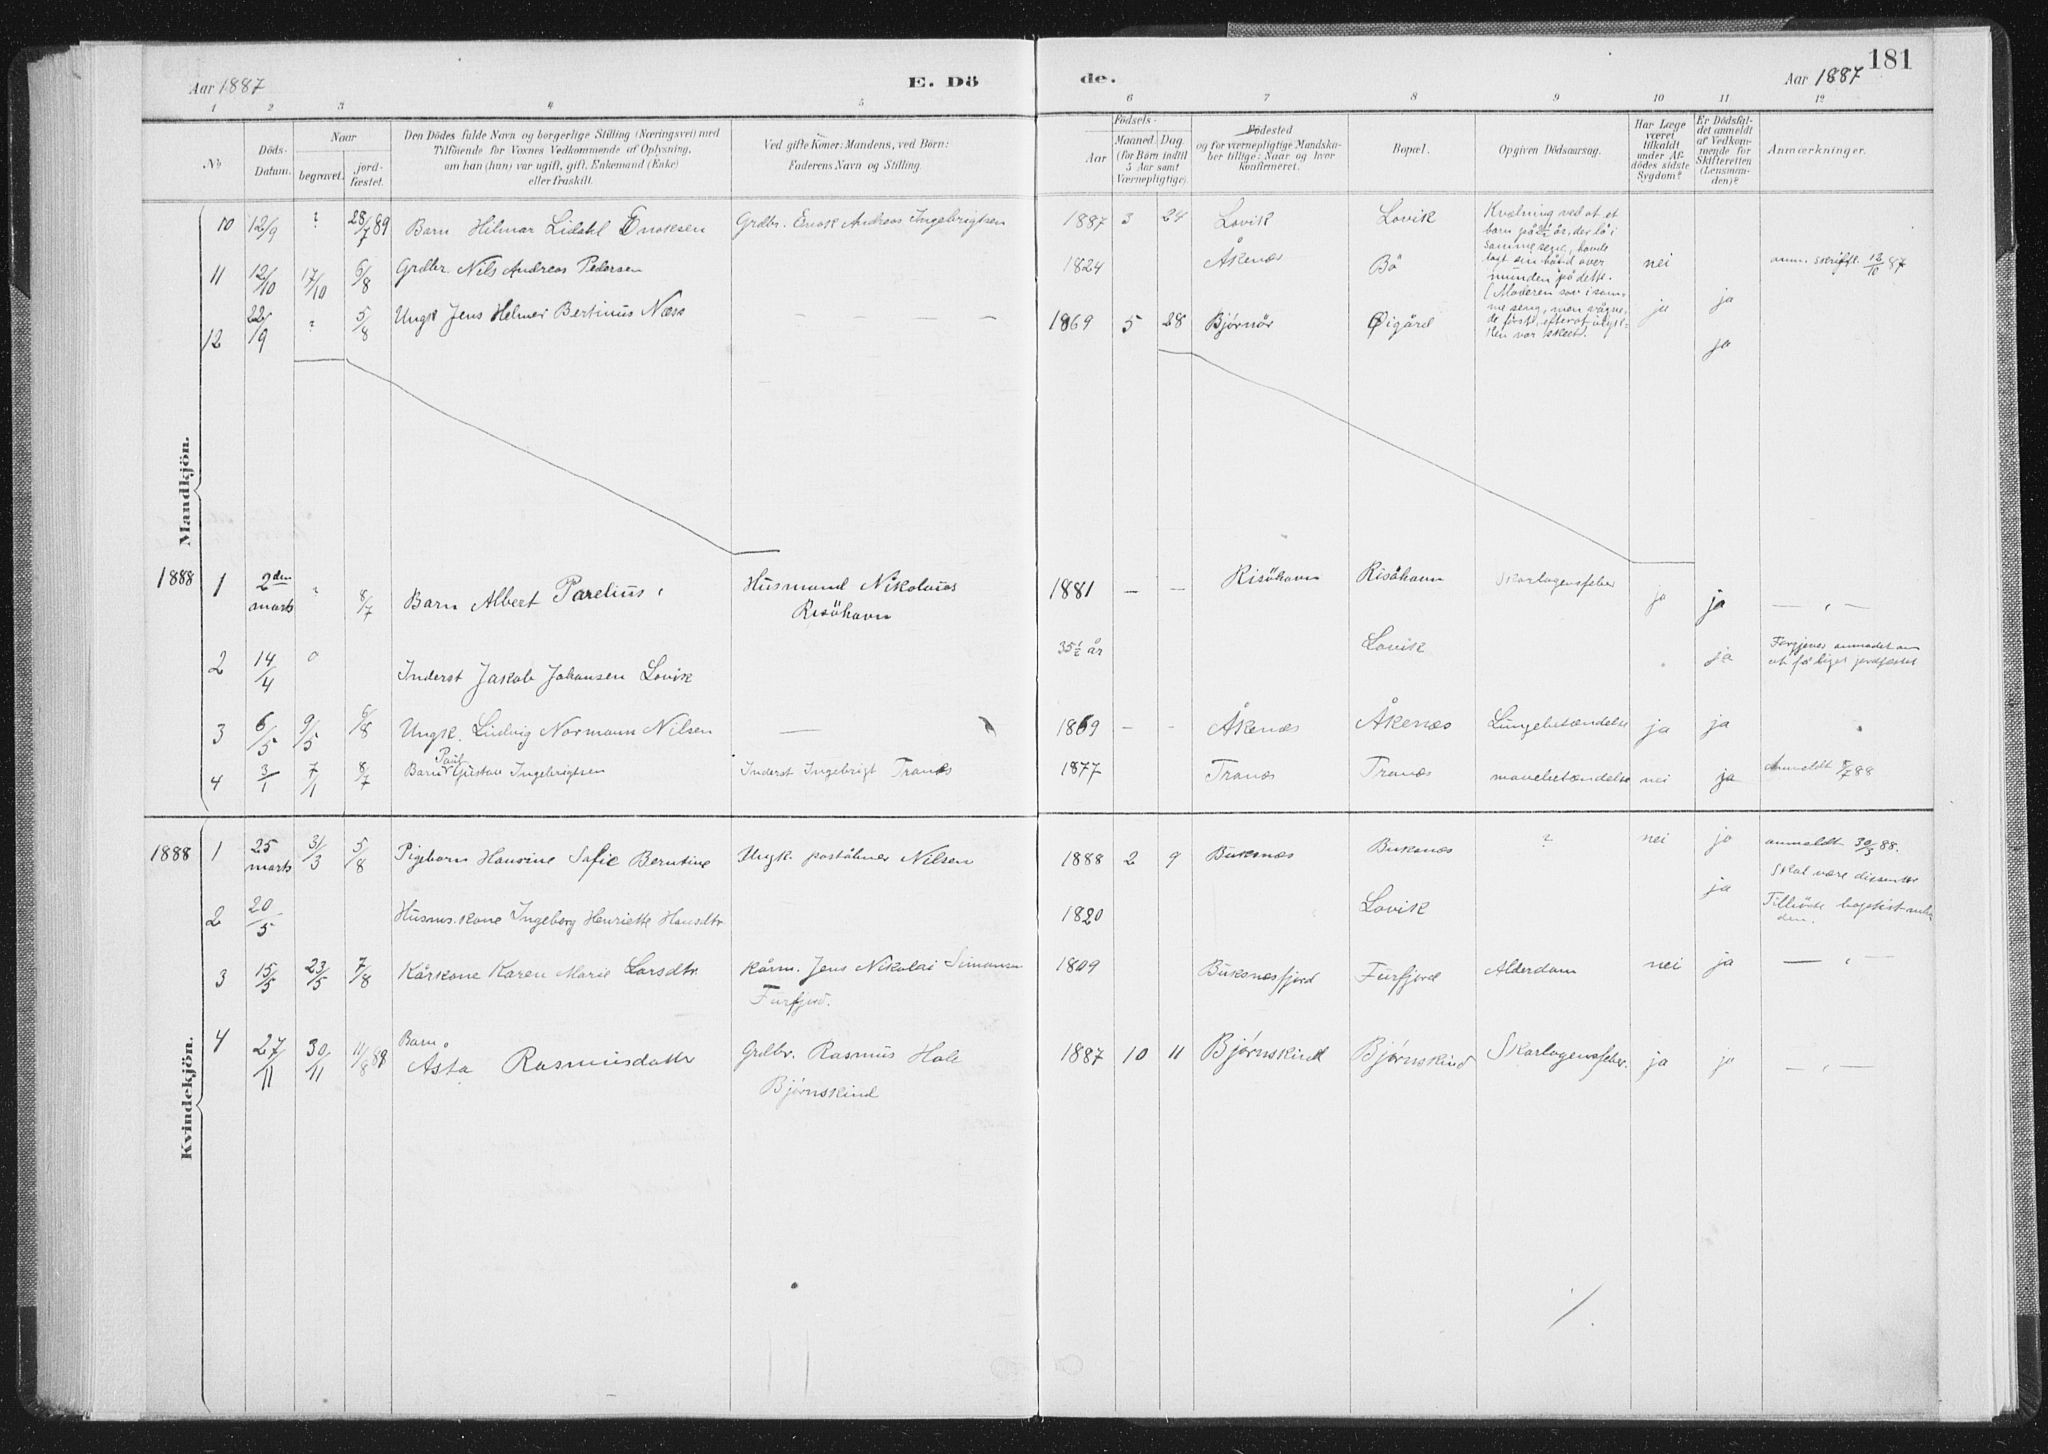 181
Aar 1887 E. Dö de. Aar 1887
1 2 3 4 5 6 7 8 9 10 11 12
No
Döds-
Datum.
Naar
begravet.
jord-
fæstet.
Den Dödes fulde Navn og borgerlige Stilling (Næringsvei) med
Tilföiende for Voxnes Vedkommende af Oplysning,
om han (hun) var ugift, gift, Enkemand (Enke)
eller fraskilt.
Ved gifte Koner: Mandens, ved Börn:
Faderens Navn og Stilling.
Födsels-
Aar
Maaned. Dag.
(for Börn indtil
5 Aar samt
Værnepligtige).
Födested
og for værnepligtige Mandska-
ber tillige: Naar og hvor
konfirmeret.
Bopæl.
Opgiven Dödsaarsag.
Har Læge
været
tilkaldt
under Af-
dödes sidste
Sygdom?
Er Dödsfal-
det anmeldt
af Vedkom-
mende for
Skifteretten
(Lensman-
den)?
Anmærkninger.
Mandkjön.
10 12/9 ? 28/7 89 Barn Hilmar Lidahl Enoksen Grdbr. Enok Andreas Ingebrigtsen 1887 3 24 Lovik Lovik
Kvælning ved at et
barn på 2½ år, der lå i
samme seng, havde
lagt sin hånd over
munden på dette.
(Moderen sov i sam-
me seng, men vågne-
de först, efterat ulyk-
ken var skeet.
11 12/10 17/10 6/8 Grdbr. Nils Andreas Pedersen 1824 Åkenæs Bö nei ja anm. skriftl. 12/10 87
12 22/9 ? 5/8 Ungk Jens Helmer Bertinus Næss — — — — 1869 5 28 Bjørnör Øigård ja ja
1888 1 2den
marts " 8/7 Barn Albert Parelius Husmand Nikolaus
Risöhavn 1881 — — Risöhavn Risöhavn Skarlagensfeber ja ja — " —
2 14/4 0 Inderst Jakob Johansen Lovik 35½ år Lovik ja Forgjæves anmodet om
at få liget jordfæstet
3 6/5 9/5 6/8 Ungk. Ludvig Normann Nilsen — 1869 — — Åkenæs Åkenæs Lungebetændelse ja ja
4 3/1 7/1 8/7 Barn Paul Gustav Ingebrigtsen Inderst Ingebrigt Tranæs 1877 Tranæs Tranæs mavebetændelse nei ja Anmeldt 8/7 88
Kvindekjön.
1888 1 25
marts 31/3 5/8 Pigebarn Hansine Sofie Berntine Ungk. poståbner Nilsen 1888 2 9 Buksnæs Buksnæs ? nei ja anmeldt 30/3 88.
Skal være dissenter
2 20/5 Husms. kone Ingeborg Henriette Hansdtr 1820 Lovik ja Tilhörte baptist-
den.
3 15/5 23/5 7/8 Kårkone Karen Marie Larsdtr. Kårm. Jens Nikolai Simonsen
Furfjord. 1809 Buksnæsfjord Furfjord Alderdom nei ja — " —
4 27/11 30/11 11/8 89 Barn
Åsta Rasmusdatter Grdbr. Rasmus Hole
Bjørnskind 1887 10 11 Bjørnskind Bjørnskind Skarlagensfeber. ja ja — " —